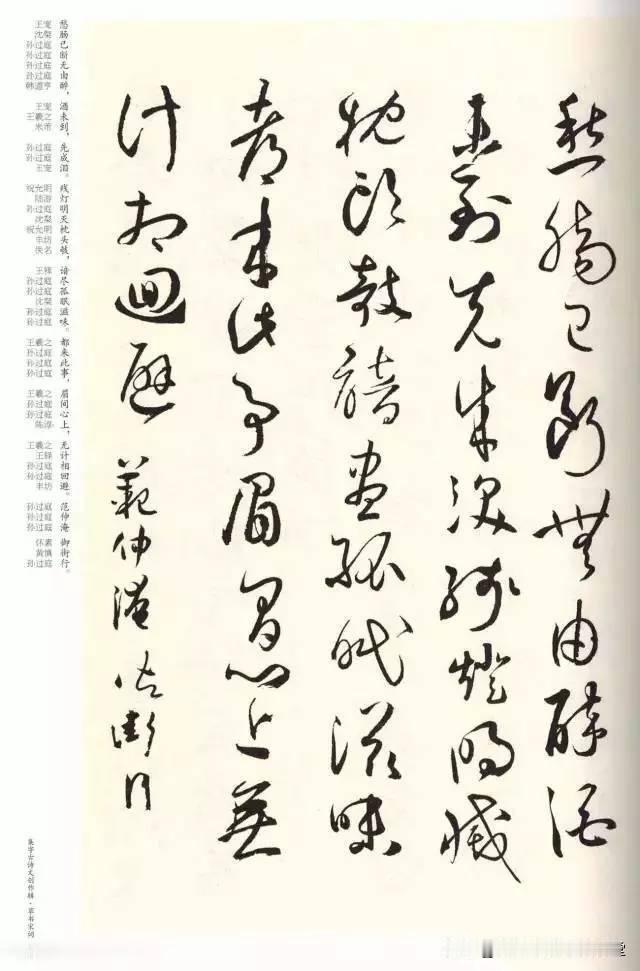 愁腸已斷無由醉酒
未到先成淚殘燈明滅
枕頭攲諳盡孤眠滋味
都來此事眉間心上無
計相迴避 範仲淹御街行
王宠 愁
沈粲 肠
孙过庭 已
孙过庭 断
孙过庭 无
孙过庭 由
韩道亨 醉，
王宠 酒
王羲之 未
米芾 到，
孙过庭 先
孙过庭 成
王宠 泪。
祝允明 残
陆游 灯
孙过庭 明
沈粲 灭
祝允明 枕
丰坊 头
佚名 攲，
王铎 谙
孙过庭 尽
孙过庭 孤
沈粲 眠
孙过庭 滋
孙过庭 味。
王羲之 都
孙过庭 来
孙过庭 此
孙过庭 事，
王羲之 眉
孙过庭 间
孙过庭 心
陈淳 上，
王羲之 无
王铎 计
孙过庭 相
孙过庭 回
丰坊 避。
孙过庭 范
孙过庭 仲
孙过庭 淹
怀素 御
黄慎 街
孙过庭 行。
集字古诗文创作辑·草书宋词